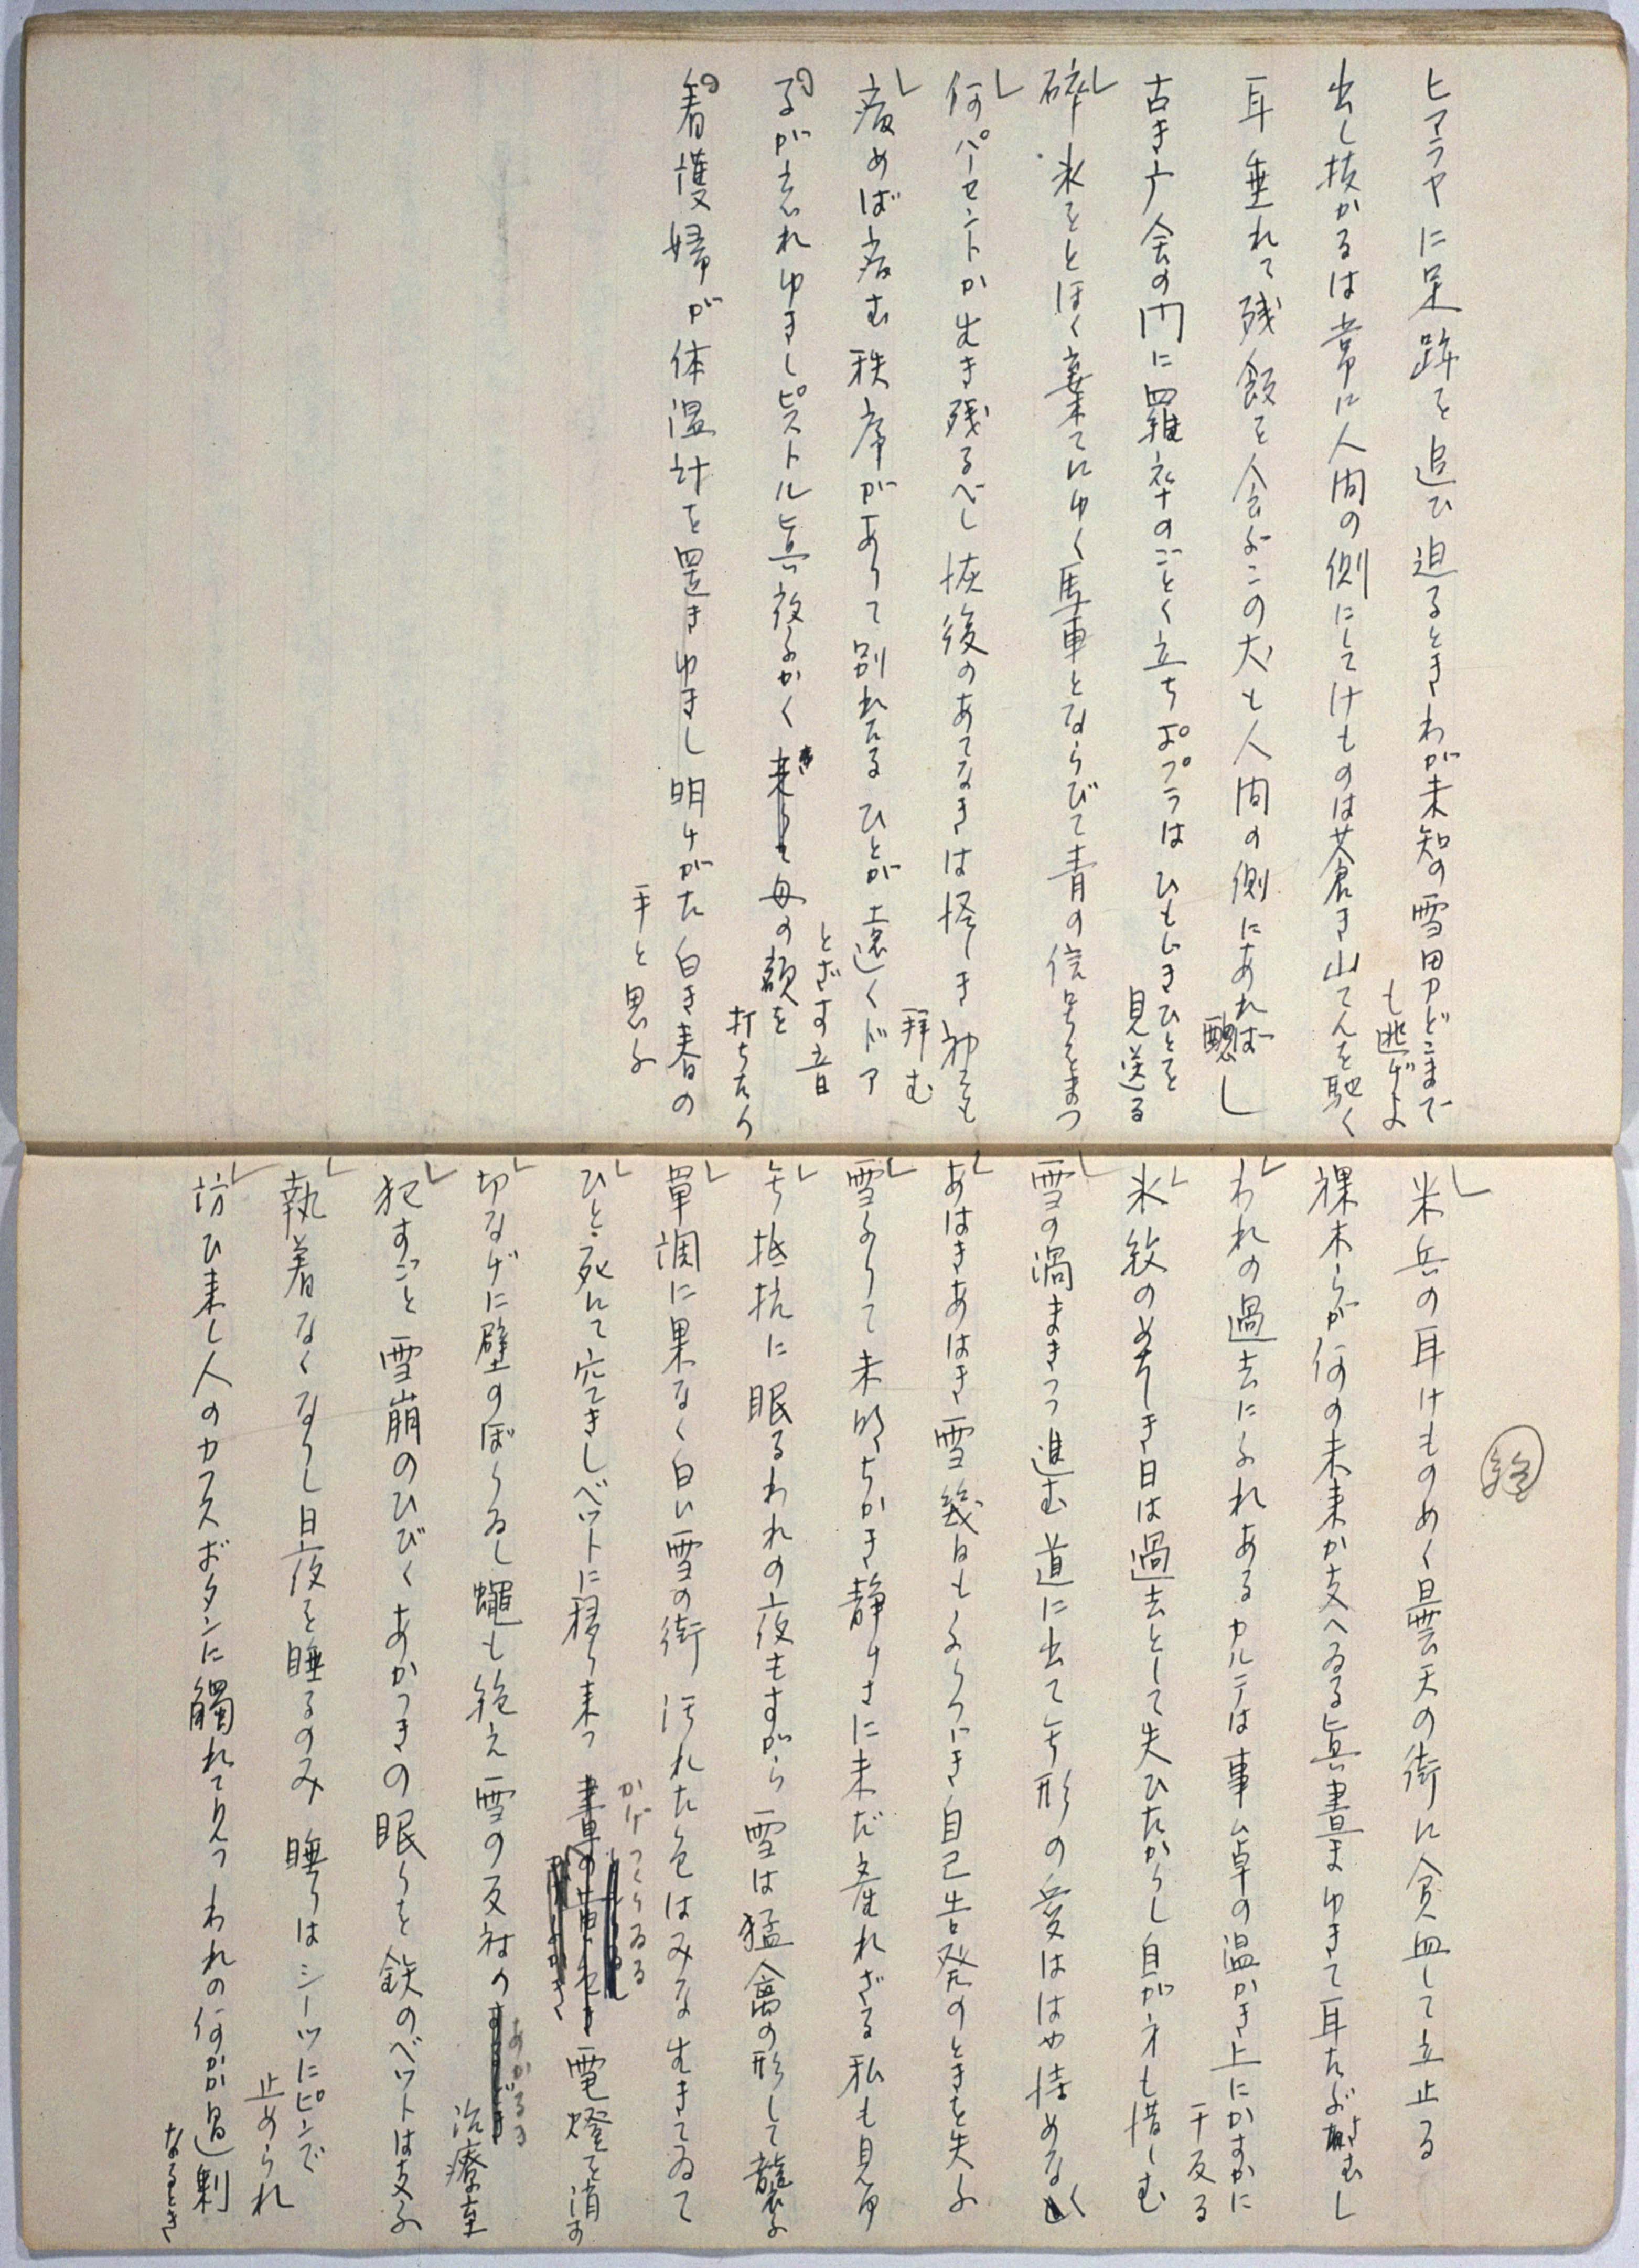 ヒマラヤに足跡を追ひ迫るときわが未知の雪男どこまで
も逃げよ
出し抜かるは常に人間の側にしてけものは蒼き山てんを馳く
耳垂れて残飯を食ふこの犬も人間の側にあれば
醜し
古き公会の門に羅卒のごとく立ちポプラはひもじきひとを
見送る
砕氷をとほく棄てにゆく馬車とならびて青の信号をまつ
何パーセントか生き残るべし 恢後のあてなきは怪しき神をも
拝む
病めば病む秩序がありて別れたる ひとが遠くドア
とざす音
るが忘れゆきしピストル真夜ふかく来 母の額を
打ちたり
看護婦が体温計を置きゆきし明けがた白き春の
手と思ふ
終
米兵の耳けものめく曇天の街に貧血して立止る
裸木らが何の未来か支へゐる真晝まゆきて耳たぶ寒し
われの過去にふれあるカルテは事ム卓の温かき上にかすかに
干反る
氷紋の美しき日は過去として失ひたからし自がオも惜しむ
雪の渦まきつつ進む道に出て弓形の愛ははや持めなく
あはきあはき雪幾日もふりつぎ自己告発のときを失ふ
雪ふりて未明ちかき静けさに未だ産れざる私も見ゆ
無抵抗に眠るわれの夜もすがら雪は猛禽の形して襲ふ
単調に果なく白い雪の街 汚れた色はみな生きてゐて
ひと死にて空きしベットに移り来つ かげつくりゐる 電燈を消す
切なげに壁のぼりゐし蠅も絶え雪の反射の あかるき
治療室
犯すごと雪崩のひびくあかつきの眠りを鉄のベットは支ふ
執着なくなりし日夜を睡るのみ 睡りはシーツにピンで
止められ
訪ひ来し人のカフスボタンに觸れて見つ われの何かが過剰
なるとき